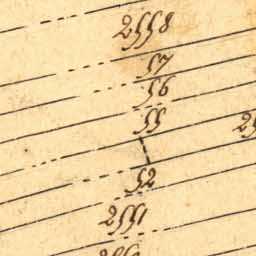 2558
57
56
55
52
2551